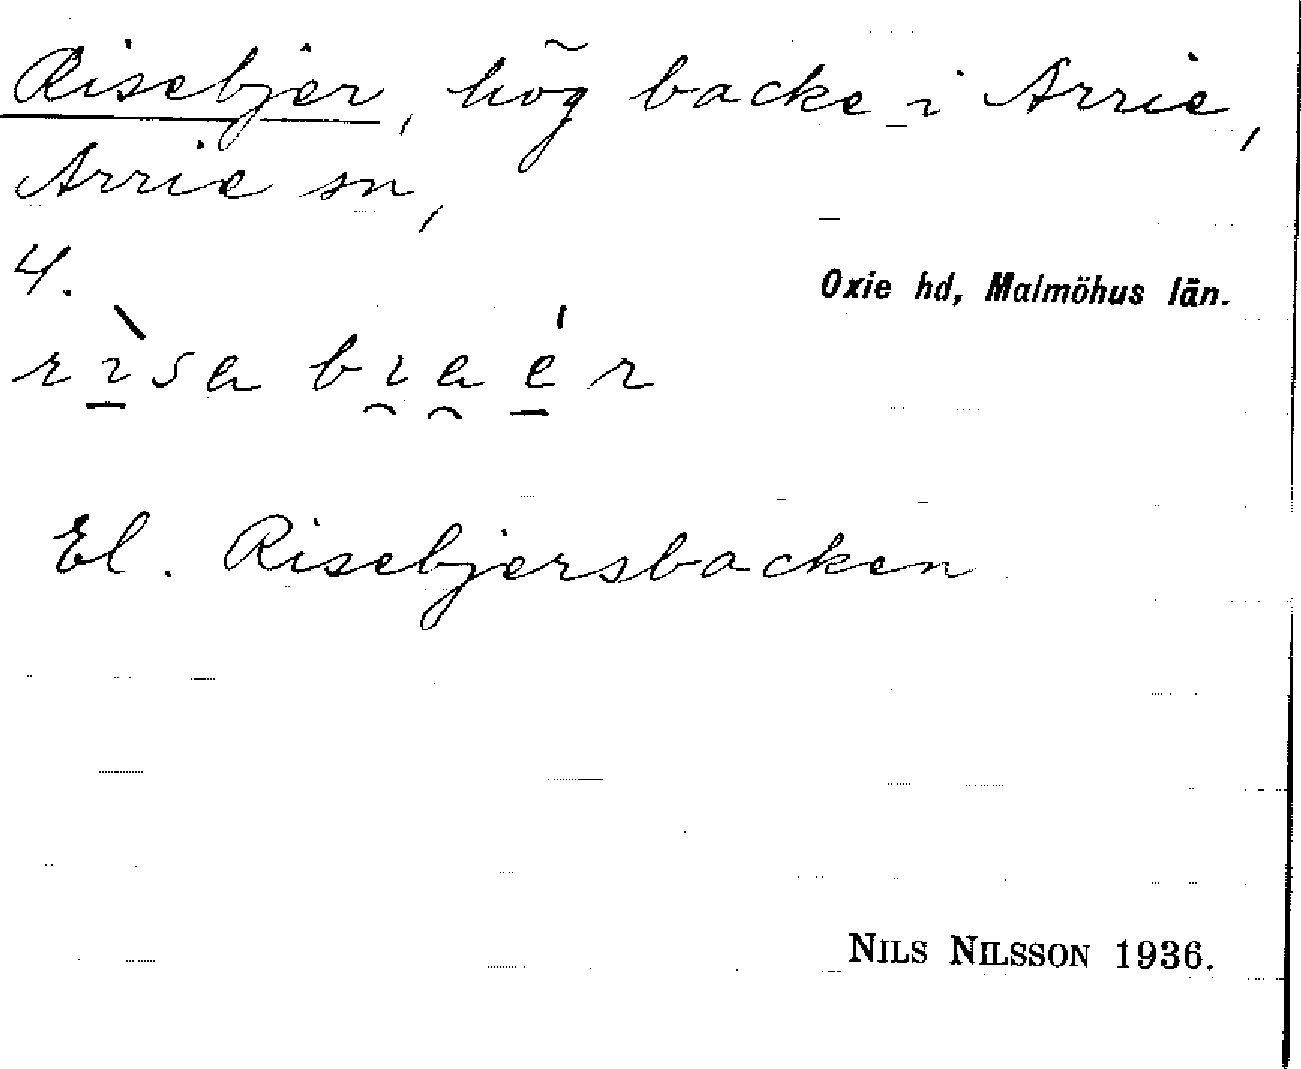 Risebjer, hög backe i Arrie,
Arrie sn,
4.
Oxie hd, Malmöhus län.
El. Risebjersbacken
NILS NILSSON 1936.